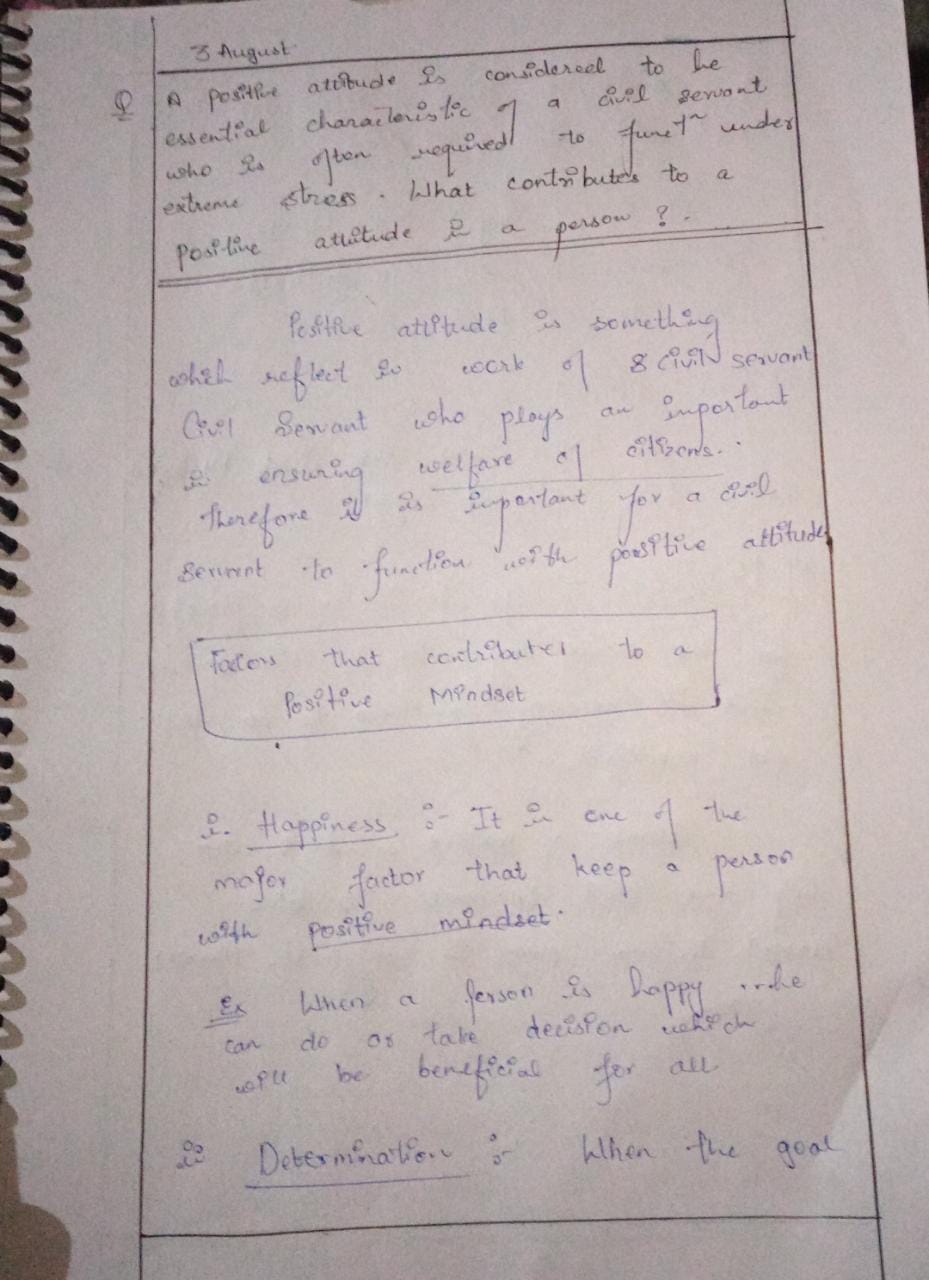 3 August
Q A positive attitude is considered to be
essential characteristic of a civil servant
who is often required to funct^n under
extreme stress. What contributes to a
positive attitude in a person ?.
Positive attitude is something
which reflect in work of a civil servant
Civil Servant who plays an important
in ensuring welfare of citizens.
Therefore it is important for a civil
Servant to function with positive attitude
Factors that contributes to a
Positive Mindset
i. Happiness :- It is one of the
major factor that keep a person
with positive mindset.
Ex When a person is happy he
can do or take decision which
will be beneficial for all
ii Determination :- When the goal